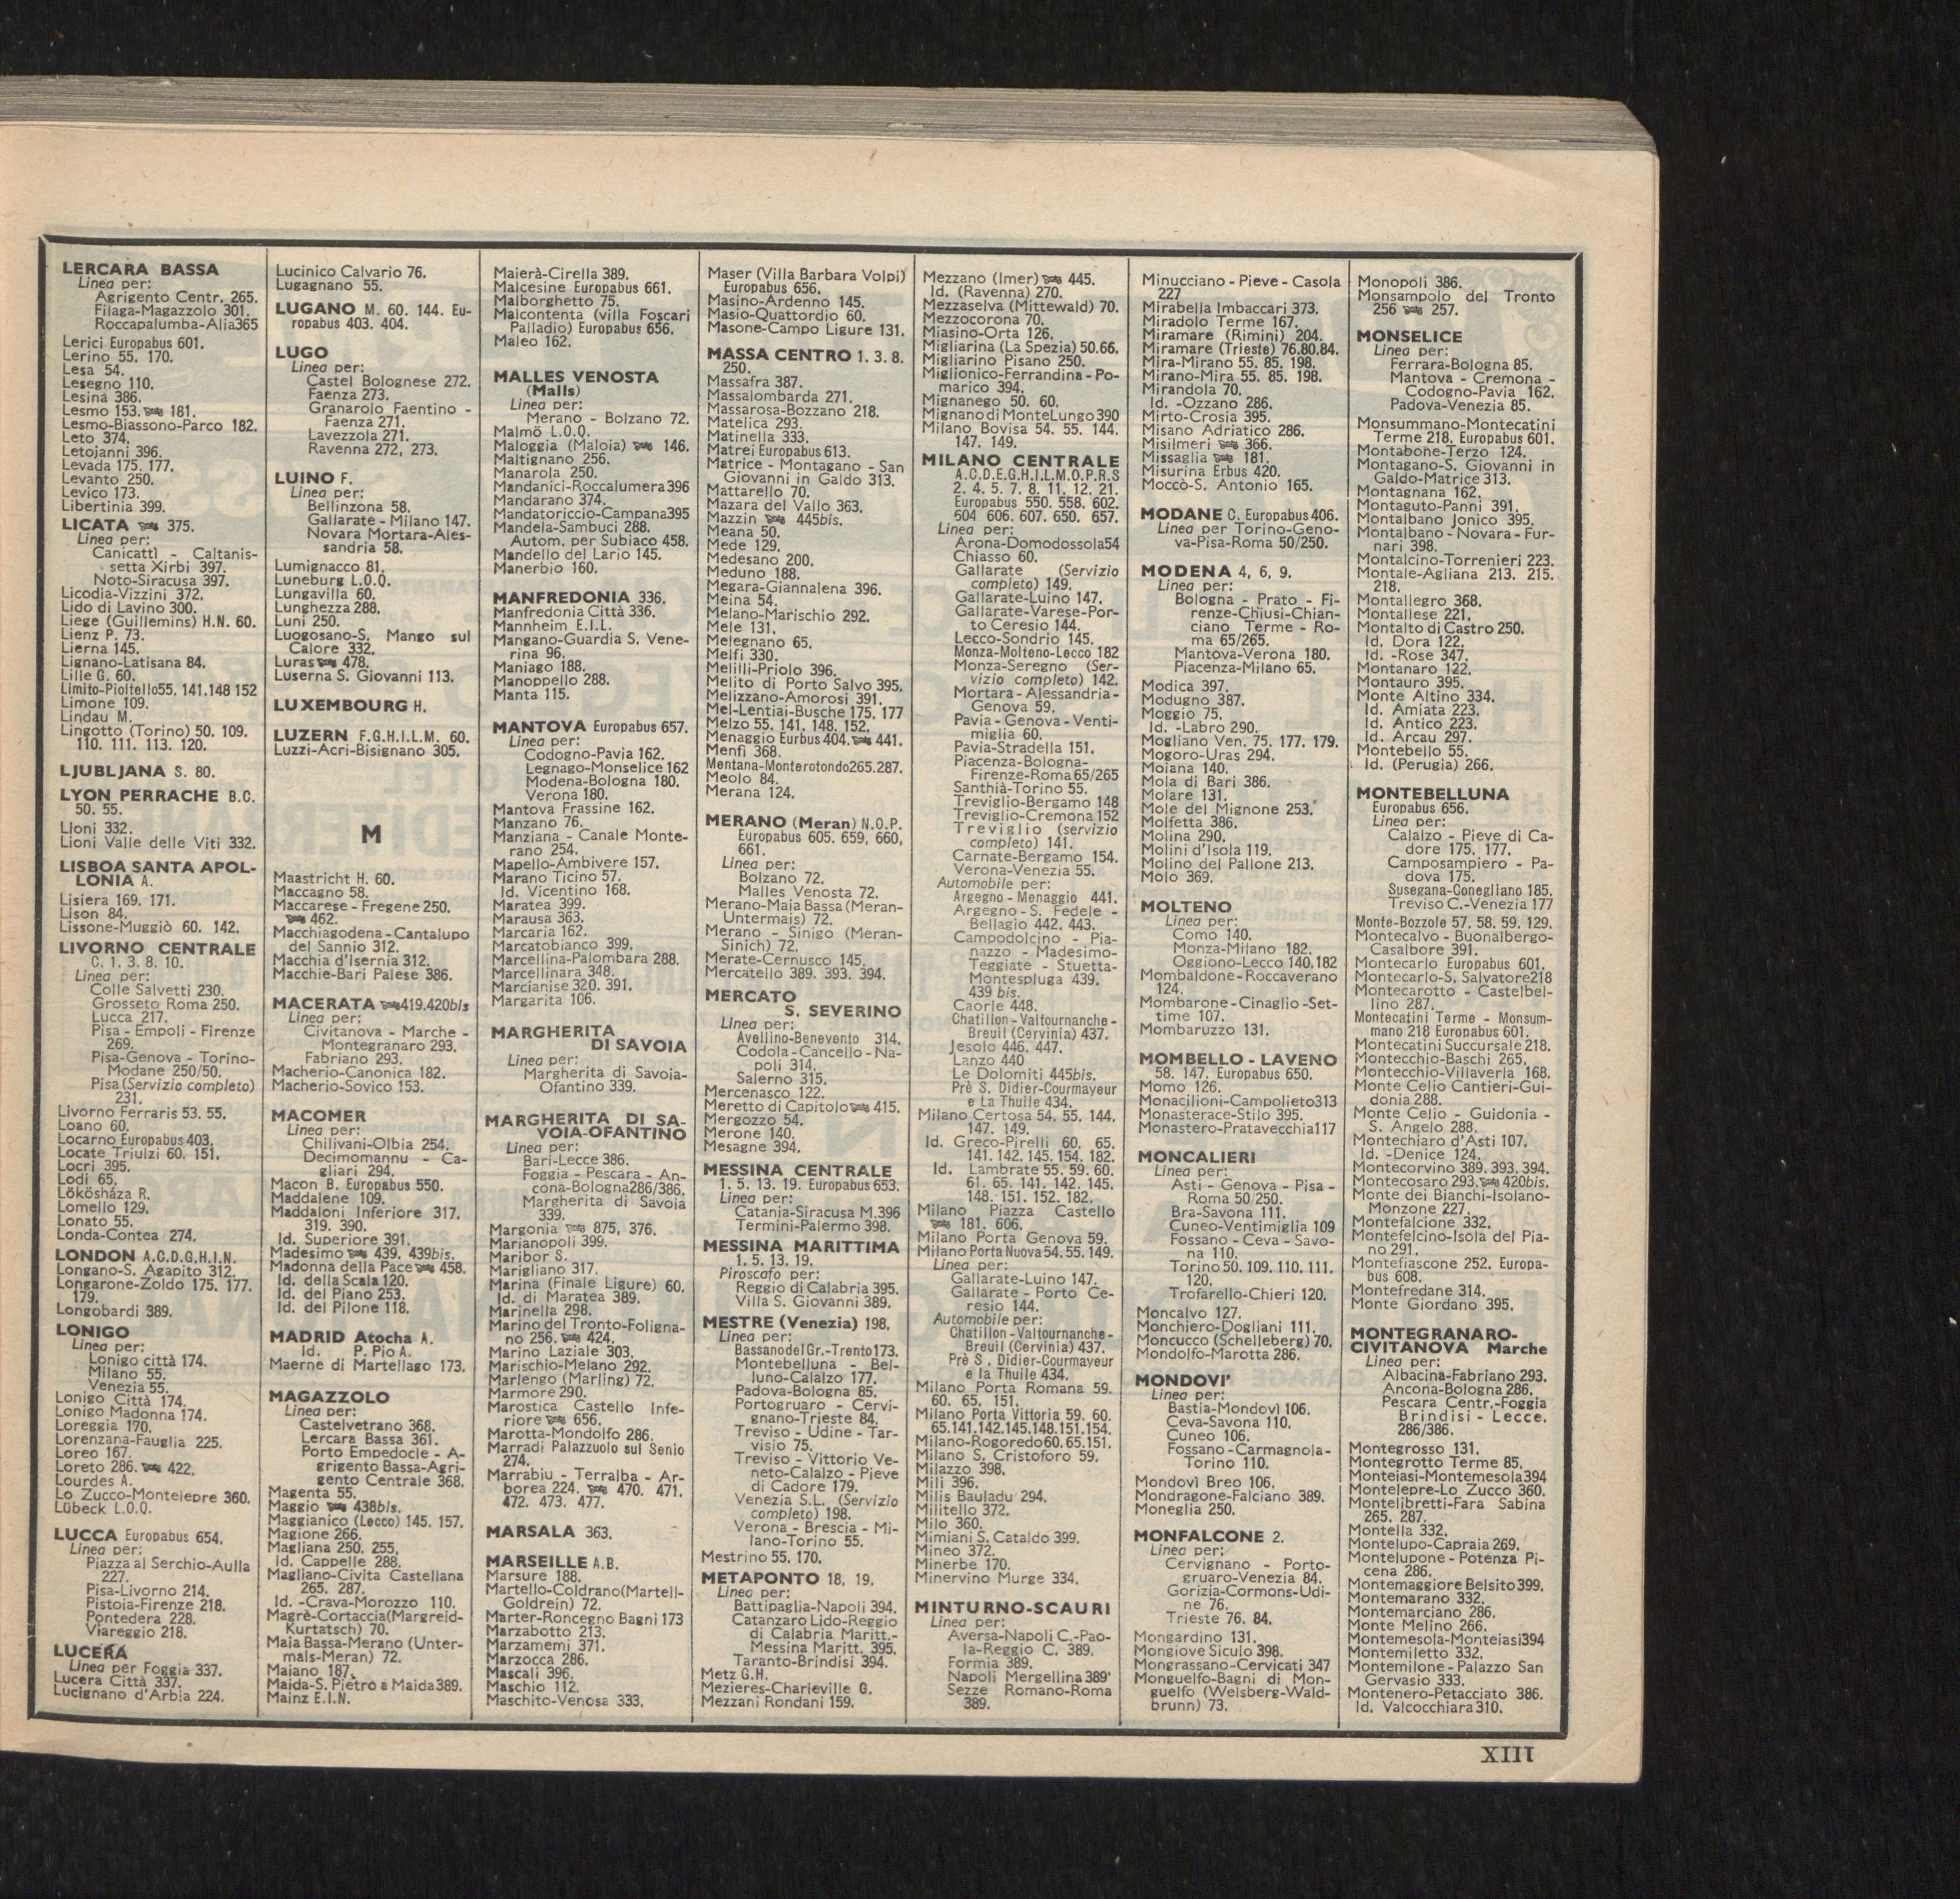 LERCARA BASSA
Linea per:
Agrigento Centr. 265.
Filaga-Magazzolo 301.
Roccapalumba-Alia365
Lerici Europabus 601.
Lerino 55. 170.
Lesa 54.
Lesegno 110.
Lesina 386.
Lesmo 153. 181.
Lesmo-Biassono-Parco 182.
Leto 374.
Letojanni 396.
Levada 175. 177.
Levanto 250.
Levico 173.
Libertinia 399.
LICATA 375.
Linea per:
Canicattì - Caltanis-
setta Xirbi 397.
Noto-Siracusa 397.
Licodia-Vizzini 372.
Lido di Lavino 300.
Liege (Guillemins) H.N. 60.
Lienz P. 73.
Lierna 145.
Lignano-Latisana 84.
Lille G. 60.
Limito-Pioltello55. 141.148 152
Limone 109.
Lindau M.
Lingotto (Torino) 50. 109.
110. 111. 113. 120.
LJUBLJANA S. 80.
LYON PERRACHE B.C.
50. 55.
Lioni 332.
Lioni Valle delle Viti 332.
LISBOA SANTA APOL-
LONIA A.
Lisiera 169. 171.
Lison 84.
Lissone-Muggiò 60. 142.
LIVORNO CENTRALE
C. 1. 3. 8. 10.
Linea per:
Colle Salvetti 230.
Grosseto Roma 250.
Lucca 217.
Pisa - Empoli - Firenze
269.
Pisa-Genova - Torino-
Modane 250/50.
Pisa (Servizio completo)
231.
Livorno Ferraris 53. 55.
Loano 60.
Locarno Europabus 403.
Locate Triulzi 60. 151.
Locri 395.
Lodi 65.
Lökösháza R.
Lomello 129.
Lonato 55.
Londa-Contea 274.
LONDON A.C.D.G.H.I.N.
Longano-S. Agapito 312.
Longarone-Zoldo 175. 177.
179.
Longobardi 389.
LONIGO
Linea per:
Lonigo città 174.
Milano 55.
Venezia 55.
Lonigo Città 174.
Lonigo Madonna 174.
Loreggia 170.
Lorenzana-Fauglia 225.
Loreo 167.
Loreto 286. 422.
Lourdes A.
Lo Zucco-Montelepre 360.
Lübeck L.O.Q.
LUCCA Europabus 654.
Linea per:
Piazza al Serchio-Aulla
227.
Pisa-Livorno 214.
Pistoia-Firenze 218.
Pontedera 228.
Viareggio 218.
LUCERA
Linea per Foggia 337.
Lucera Città 337.
Lucignano d'Arbia 224.
Lucinico Calvario 76.
Lugagnano 55.
LUGANO M. 60. 144. Eu-
ropabus 403. 404.
LUGO
Linea per:
Castel Bolognese 272.
Faenza 273.
Granarolo Faentino -
Faenza 271.
Lavezzola 271.
Ravenna 272, 273.
LUINO F.
Linea per:
Bellinzona 58.
Gallarate - Milano 147.
Novara Mortara-Ales-
sandria 58.
Lumignacco 81.
Luneburg L.O.Q.
Lungavilla 60.
Lunghezza 288.
Luni 250.
Luogosano-S. Mango sul
Calore 332.
Luras 478.
Luserna S. Giovanni 113.
LUXEMBOURG H.
LUZERN F.G.H.I.L.M. 60.
Luzzi-Acri-Bisignano 305.
M
Maastricht H. 60.
Maccagno 58.
Maccarese - Fregene 250.
462.
Macchiagodena - Cantalupo
del Sannio 312.
Macchia d'Isernia 312.
Macchie-Bari Palese 386.
MACERATA 419.420bis
Linea per:
Civitanova - Marche -
Montegranaro 293.
Fabriano 293.
Macherio-Canonica 182.
Macherio-Sovico 153.
MACOMER
Linea per:
Chilivani-Olbia 254.
Decimomannu - Ca-
gliari 294.
Macon B. Europabus 550.
Maddalene 109.
Maddaloni Inferiore 317.
319. 390.
Id. Superiore 391.
Madesimo 439. 439bis.
Madonna della Pace 458.
Id. della Scala 120.
Id. del Piano 253.
Id. del Pilone 118.
MADRID Atocha A.
Id. P. Pio A.
Maerne di Martellago 173.
MAGAZZOLO
Linea per:
Castelvetrano 368.
Lercara Bassa 361.
Porto Empedocle - A-
grigento Bassa-Agri-
gento Centrale 368.
Magenta 55.
Maggio 438bis.
Maggianico (Lecco) 145. 157.
Magione 266.
Magliana 250. 255.
Id. Cappelle 288.
Magliano-Civita Castellana
265. 287.
Id. -Crava-Morozzo 110.
Magrè-Cortaccia(Margreid-
Kurtatsch) 70.
Maia Bassa-Merano (Unter-
mals-Meran) 72.
Maiano 187.
Maida-S. Pietro a Maida389.
Mainz E.I.N.
Maierà-Cirella 389.
Malcesine Europabus 661.
Malborghetto 75.
Malcontenta (villa Foscari
Palladio) Europabus 656.
Maleo 162.
MALLES VENOSTA
(Malls)
Linea per:
Merano - Bolzano 72.
Malmö L.O.Q.
Maloggia (Maloia) 146.
Maltignano 256.
Manarola 250.
Mandanici-Roccalumera396
Mandarano 374.
Mandatoriccio-Campana395
Mandela-Sambuci 288.
Autom. per Subiaco 458.
Mandello del Lario 145.
Manerbio 160.
MANFREDONIA 336.
Manfredonia Città 336.
Mannheim E.I.L.
Mangano-Guardia S. Vene-
rina 96.
Maniago 188.
Manoppello 288.
Manta 115.
MANTOVA Europabus 657.
Linea per:
Codogno-Pavia 162.
Legnago-Monselice 162
Modena-Bologna 180.
Verona 180.
Mantova Frassine 162.
Manzano 76.
Manziana - Canale Monte-
rano 254.
Mapello-Ambivere 157.
Marano Ticino 57.
Id. Vicentino 168.
Maratea 399.
Marausa 363.
Marcaria 162.
Marcatobianco 399.
Marcellina-Palombara 288.
Marcellinara 348.
Marcianise 320. 391.
Margarita 106.
MARGHERITA
DI SAVOIA
Linea per:
Margherita di Savoia-
Ofantino 339.
MARGHERITA DI SA-
VOIA-OFANTINO
Linea per:
Bari-Lecce 386.
Foggia - Pescara - An-
cona-Bologna286/386.
Margherita di Savoia
339.
Margonia 875, 376.
Marianopoli 399.
Maribor S.
Marigliano 317.
Marina (Finale Ligure) 60.
Id. di Maratea 389.
Marinella 298.
Marino del Tronto-Foligna-
no 256. 424.
Marino Laziale 303.
Marischio-Melano 292.
Marlengo (Marling) 72.
Marmore 290.
Marostica Castello Infe-
riore 656.
Marotta-Mondolfo 286.
Marradi Palazzuolo sul Senio
274.
Marrabiu - Terralba - Ar-
borea 224. 470. 471.
472. 473. 477.
MARSALA 363.
MARSEILLE A.B.
Marsure 188.
Martello-Coldrano(Martell-
Goldrein) 72.
Marter-Roncegno Bagni 173
Marzabotto 213.
Marzamemi 371.
Marzocca 286.
Mascali 396.
Maschio 112.
Maschito-Venosa 333.
Maser (Villa Barbara Volpi)
Europabus 656.
Masino-Ardenno 145.
Masio-Quattordio 60.
Masone-Campo Ligure 131.
MASSA CENTRO 1. 3. 8.
250.
Massafra 387.
Massalombarda 271.
Massarosa-Bozzano 218.
Matelica 293.
Matinella 333.
Matrei Europabus 613.
Matrice - Montagano - San
Giovanni in Galdo 313.
Mattarello 70.
Mazara del Vallo 363.
Mazzin 445bis.
Meana 50.
Mede 129.
Medesano 200.
Meduno 188.
Megara-Giannalena 396.
Meina 54.
Melano-Marischio 292.
Mele 131.
Melegnano 65.
Melfi 330.
Melilli-Priolo 396.
Melito di Porto Salvo 395.
Melizzano-Amorosi 391.
Mel-Lentiai-Busche 175. 177
Melzo 55. 141. 148. 152.
Menaggio Eurbus 404. 441.
Menfi 368.
Mentana-Monterotondo265.287.
Meolo 84.
Merana 124.
MERANO (Meran) N.O.P.
Europabus 605. 659, 660,
661.
Linea per:
Bolzano 72.
Malles Venosta 72.
Merano-Maia Bassa (Meran-
Untermais) 72.
Merano - Sinigo (Meran-
Sinich) 72.
Merate-Cernusco 145.
Mercatello 389. 393. 394.
MERCATO
S. SEVERINO
Linea per:
Avellino-Benevento 314.
Codola-Cancello - Na-
poli 314.
Salerno 315.
Mercenasco 122.
Meretto di Capitolo 415.
Mergozzo 54.
Merone 140.
Mesagne 394.
MESSINA CENTRALE
1. 5. 13. 19. Europabus 653.
Linea per:
Catania-Siracusa M.396
Termini-Palermo 398.
MESSINA MARITTIMA
1. 5. 13. 19.
Piroscafo per:
Reggio di Calabria 395.
Villa S. Giovanni 389.
MESTRE (Venezia) 198.
Linea per:
Bassano del Gr.-Trento173.
Montebelluna - Bel-
luno-Calalzo 177.
Padova-Bologna 85.
Portogruaro - Cervi-
gnano-Trieste 84.
Treviso - Udine - Tar-
visio 75.
Treviso - Vittorio Ve-
neto-Calalzo - Pieve
di Cadore 179.
Venezia S.L. (Servizio
completo) 198.
Verona - Brescia - Mi-
lano-Torino 55.
Mestrino 55. 170.
METAPONTO 18, 19.
Linea per:
Battipaglia-Napoli 394.
Catanzaro Lido-Reggio
di Calabria Maritt.-
Messina Maritt. 395.
Taranto-Brindisi 394.
Metz G.H.
Mezieres-Charleville G.
Mezzani Rondani 159.
Mezzano (Imer) 445.
Id. (Ravenna) 270.
Mezzaselva (Mittewald) 70.
Mezzocorona 70.
Miasino-Orta 126.
Migliarina (La Spezia) 50.66.
Migliarino Pisano 250.
Miglionico-Ferrandina - Po-
marico 394.
Mignanego 50. 60.
Mignano di MonteLungo 390
Milano Bovisa 54. 55. 144.
147. 149.
MILANO CENTRALE
A.C.D.E.G.H.I.L.M.O.P.R.S
2. 4. 5. 7. 8. 11. 12. 21.
Europabus 550. 558. 602.
604 606. 607. 650. 657.
Linea per:
Arona-Domodossola54
Chiasso 60.
Gallarate (Servizio
completo) 149.
Gallarate-Luino 147.
Gallarate-Varese-Por-
to Ceresio 144.
Lecco-Sondrio 145.
Monza-Molteno-Lecco 182
Monza-Seregno (Ser-
vizio completo) 142.
Mortara - Alessandria-
Genova 59.
Pavia - Genova - Venti-
miglia 60.
Pavia-Stradella 151.
Piacenza-Bologna-
Firenze-Roma 65/265
Santhià-Torino 55.
Treviglio-Bergamo 148
Treviglio-Cremona 152
Treviglio (servizio
completo) 141.
Carnate-Bergamo 154.
Verona-Venezia 55.
Automobile per:
Argegno - Menaggio 441.
Argegno - S. Fedele -
Bellagio 442. 443.
Campodolcino - Pia-
nazzo - Madesimo-
Teggiate - Stuetta-
Montespluga 439.
439 bis.
Caorle 448.
Chatillon - Valtournanche -
Breuil (Cervinia) 437.
Jesolo 446. 447.
Lanzo 440
Le Dolomiti 445bis.
Prè S. Didier-Courmayeur
e La Thuile 434.
Milano Certosa 54. 55. 144.
147. 149.
Id. Greco-Pirelli 60. 65.
141. 142. 145. 154. 182.
Id. Lambrate 55. 59. 60.
61. 65. 141. 142. 145.
148. 151. 152. 182.
Milano Piazza Castello
181. 606.
Milano Porta Genova 59.
Milano Porta Nuova 54. 55. 149.
Linea per:
Gallarate-Luino 147.
Gallarate - Porto Ce-
resio 144.
Automobile per:
Chatillon - Valtournanche -
Breuil (Cervinia) 437.
Prè S. Didier-Courmayeur
e la Thuile 434.
Milano Porta Romana 59.
60. 65. 151.
Milano Porta Vittoria 59. 60.
65.141.142.145.148.151.154.
Milano-Rogoredo60.65.151.
Milano S. Cristoforo 59.
Milazzo 398.
Mili 396.
Milis Bauladu 294.
Militello 372.
Milo 360.
Mimiani S. Cataldo 399.
Mineo 372.
Minerbe 170.
Minervino Murge 334.
MINTURNO-SCAURI
Linea per:
Aversa-Napoli C.-Pao-
la-Reggio C. 389.
Formia 389.
Napoli Mergellina 389
Sezze Romano-Roma
389.
Minucciano - Pieve - Casola
227
Mirabella Imbaccari 373.
Miradolo Terme 167.
Miramare (Rimini) 204.
Miramare (Trieste) 76.80.84.
Mira-Mirano 55. 85. 198.
Mirano-Mira 55. 85. 198.
Mirandola 70.
Id. -Ozzano 286.
Mirto-Crosia 395.
Misano Adriatico 286.
Misilmeri 366.
Missaglia 181.
Misurina Erbus 420.
Moccò-S. Antonio 165.
MODANE C. Europabus 406.
Linea per Torino-Geno-
va-Pisa-Roma 50/250.
MODENA 4, 6, 9.
Linea per:
Bologna - Prato - Fi-
renze-Chiusi-Chian-
ciano Terme - Ro-
ma 65/265.
Mantova-Verona 180.
Piacenza-Milano 65.
Modica 397.
Modugno 387.
Moggio 75.
Id. -Labro 290.
Mogliano Ven. 75. 177. 179.
Mogoro-Uras 294.
Moiana 140.
Mola di Bari 386.
Molare 131.
Mole del Mignone 253.
Molfetta 386.
Molina 290.
Molini d'Isola 119.
Molino del Pallone 213.
Molo 369.
MOLTENO
Linea per:
Como 140.
Monza-Milano 182.
Oggiono-Lecco 140.182
Mombaldone-Roccaverano
124.
Mombarone - Cinaglio - Set-
time 107.
Mombaruzzo 131.
MOMBELLO - LAVENO
58. 147. Europabus 650.
Momo 126.
Monacilioni-Campolieto313
Monasterace-Stilo 395.
Monastero-Pratavecchia117
MONCALIERI
Linea per:
Asti - Genova - Pisa -
Roma 50/250.
Bra-Savona 111.
Cuneo-Ventimiglia 109
Fossano - Ceva - Savo-
na 110.
Torino 50. 109. 110. 111.
120.
Trofarello-Chieri 120.
Moncalvo 127.
Monchiero-Dogliani 111.
Moncucco (Schelleberg) 70.
Mondolfo-Marotta 286.
MONDOVI'
Linea per:
Bastia-Mondovì 106.
Ceva-Savona 110.
Cuneo 106.
Fossano - Carmagnola-
Torino 110.
Mondovì Breo 106.
Mondragone-Falciano 389.
Moneglia 250.
MONFALCONE 2.
Linea per:
Cervignano - Porto-
gruaro-Venezia 84.
Gorizia-Cormons-Udi-
ne 76.
Trieste 76. 84.
Mongardino 131.
Mongiove Siculo 398.
Mongrassano-Cervicati 347
Monguelfo-Bagni di Mon-
guelfo (Welsberg-Wald-
brunn) 73.
Monopoli 386.
Monsampolo del Tronto
256 257.
MONSELICE
Linea per:
Ferrara-Bologna 85.
Mantova - Cremona -
Codogno-Pavia 162.
Padova-Venezia 85.
Monsummano-Montecatini
Terme 218. Europabus 601.
Montabone-Terzo 124.
Montagano-S. Giovanni in
Galdo-Matrice 313.
Montagnana 162.
Montaguto-Panni 391.
Montalbano Jonico 395.
Montalbano - Novara - Fur-
nari 398.
Montalcino-Torrenieri 223.
Montale-Agliana 213. 215.
218.
Montallegro 368.
Montallese 221.
Montalto di Castro 250.
Id. Dora 122.
Id. -Rose 347.
Montanaro 122.
Montauro 395.
Monte Altino 334.
Id. Amiata 223.
Id. Antico 223.
Id. Arcau 297.
Montebello 55.
Id. (Perugia) 266.
MONTEBELLUNA
Europabus 656.
Linea per:
Calalzo - Pieve di Ca-
dore 175. 177.
Camposampiero - Pa-
dova 175.
Susegana-Conegliano 185.
Treviso C.-Venezia 177
Monte-Bozzole 57. 58. 59. 129.
Montecalvo - Buonalbergo-
Casalbore 391.
Montecarlo Europabus 601.
Montecarlo-S. Salvatore218
Montecarotto - Castelbel-
lino 287.
Montecatini Terme - Monsum-
mano 218 Europabus 601.
Montecatini Succursale 218.
Montecchio-Baschi 265.
Montecchio-Villaverla 168.
Monte Celio Cantieri-Gui-
donia 288.
Monte Celio - Guidonia -
S. Angelo 288.
Montechiaro d'Asti 107.
Id. -Denice 124.
Montecorvino 389. 393. 394.
Montecosaro 293. 420bis.
Monte dei Bianchi-Isolano-
Monzone 227.
Montefalcione 332.
Montefelcino-Isola del Pia-
no 291.
Montefiascone 252. Europa-
bus 608.
Montefredane 314.
Monte Giordano 395.
MONTEGRANARO-
CIVITANOVA Marche
Linea per:
Albacina-Fabriano 293.
Ancona-Bologna 286.
Pescara Centr.-Foggia
Brindisi - Lecce.
286/386.
Montegrosso 131.
Montegrotto Terme 85.
Monteiasi-Montemesola394
Montelepre-Lo Zucco 360.
Montelibretti-Fara Sabina
265. 287.
Montella 332.
Montelupo-Capraia 269.
Montelupone - Potenza Pi-
cena 286.
Montemaggiore Belsito399.
Montemarano 332.
Montemarciano 286.
Monte Melino 266.
Montemesola-Monteiasi394
Montemiletto 332.
Montemilone - Palazzo San
Gervasio 333.
Montenero-Petacciato 386.
Id. Valcocchiara310.
XIII